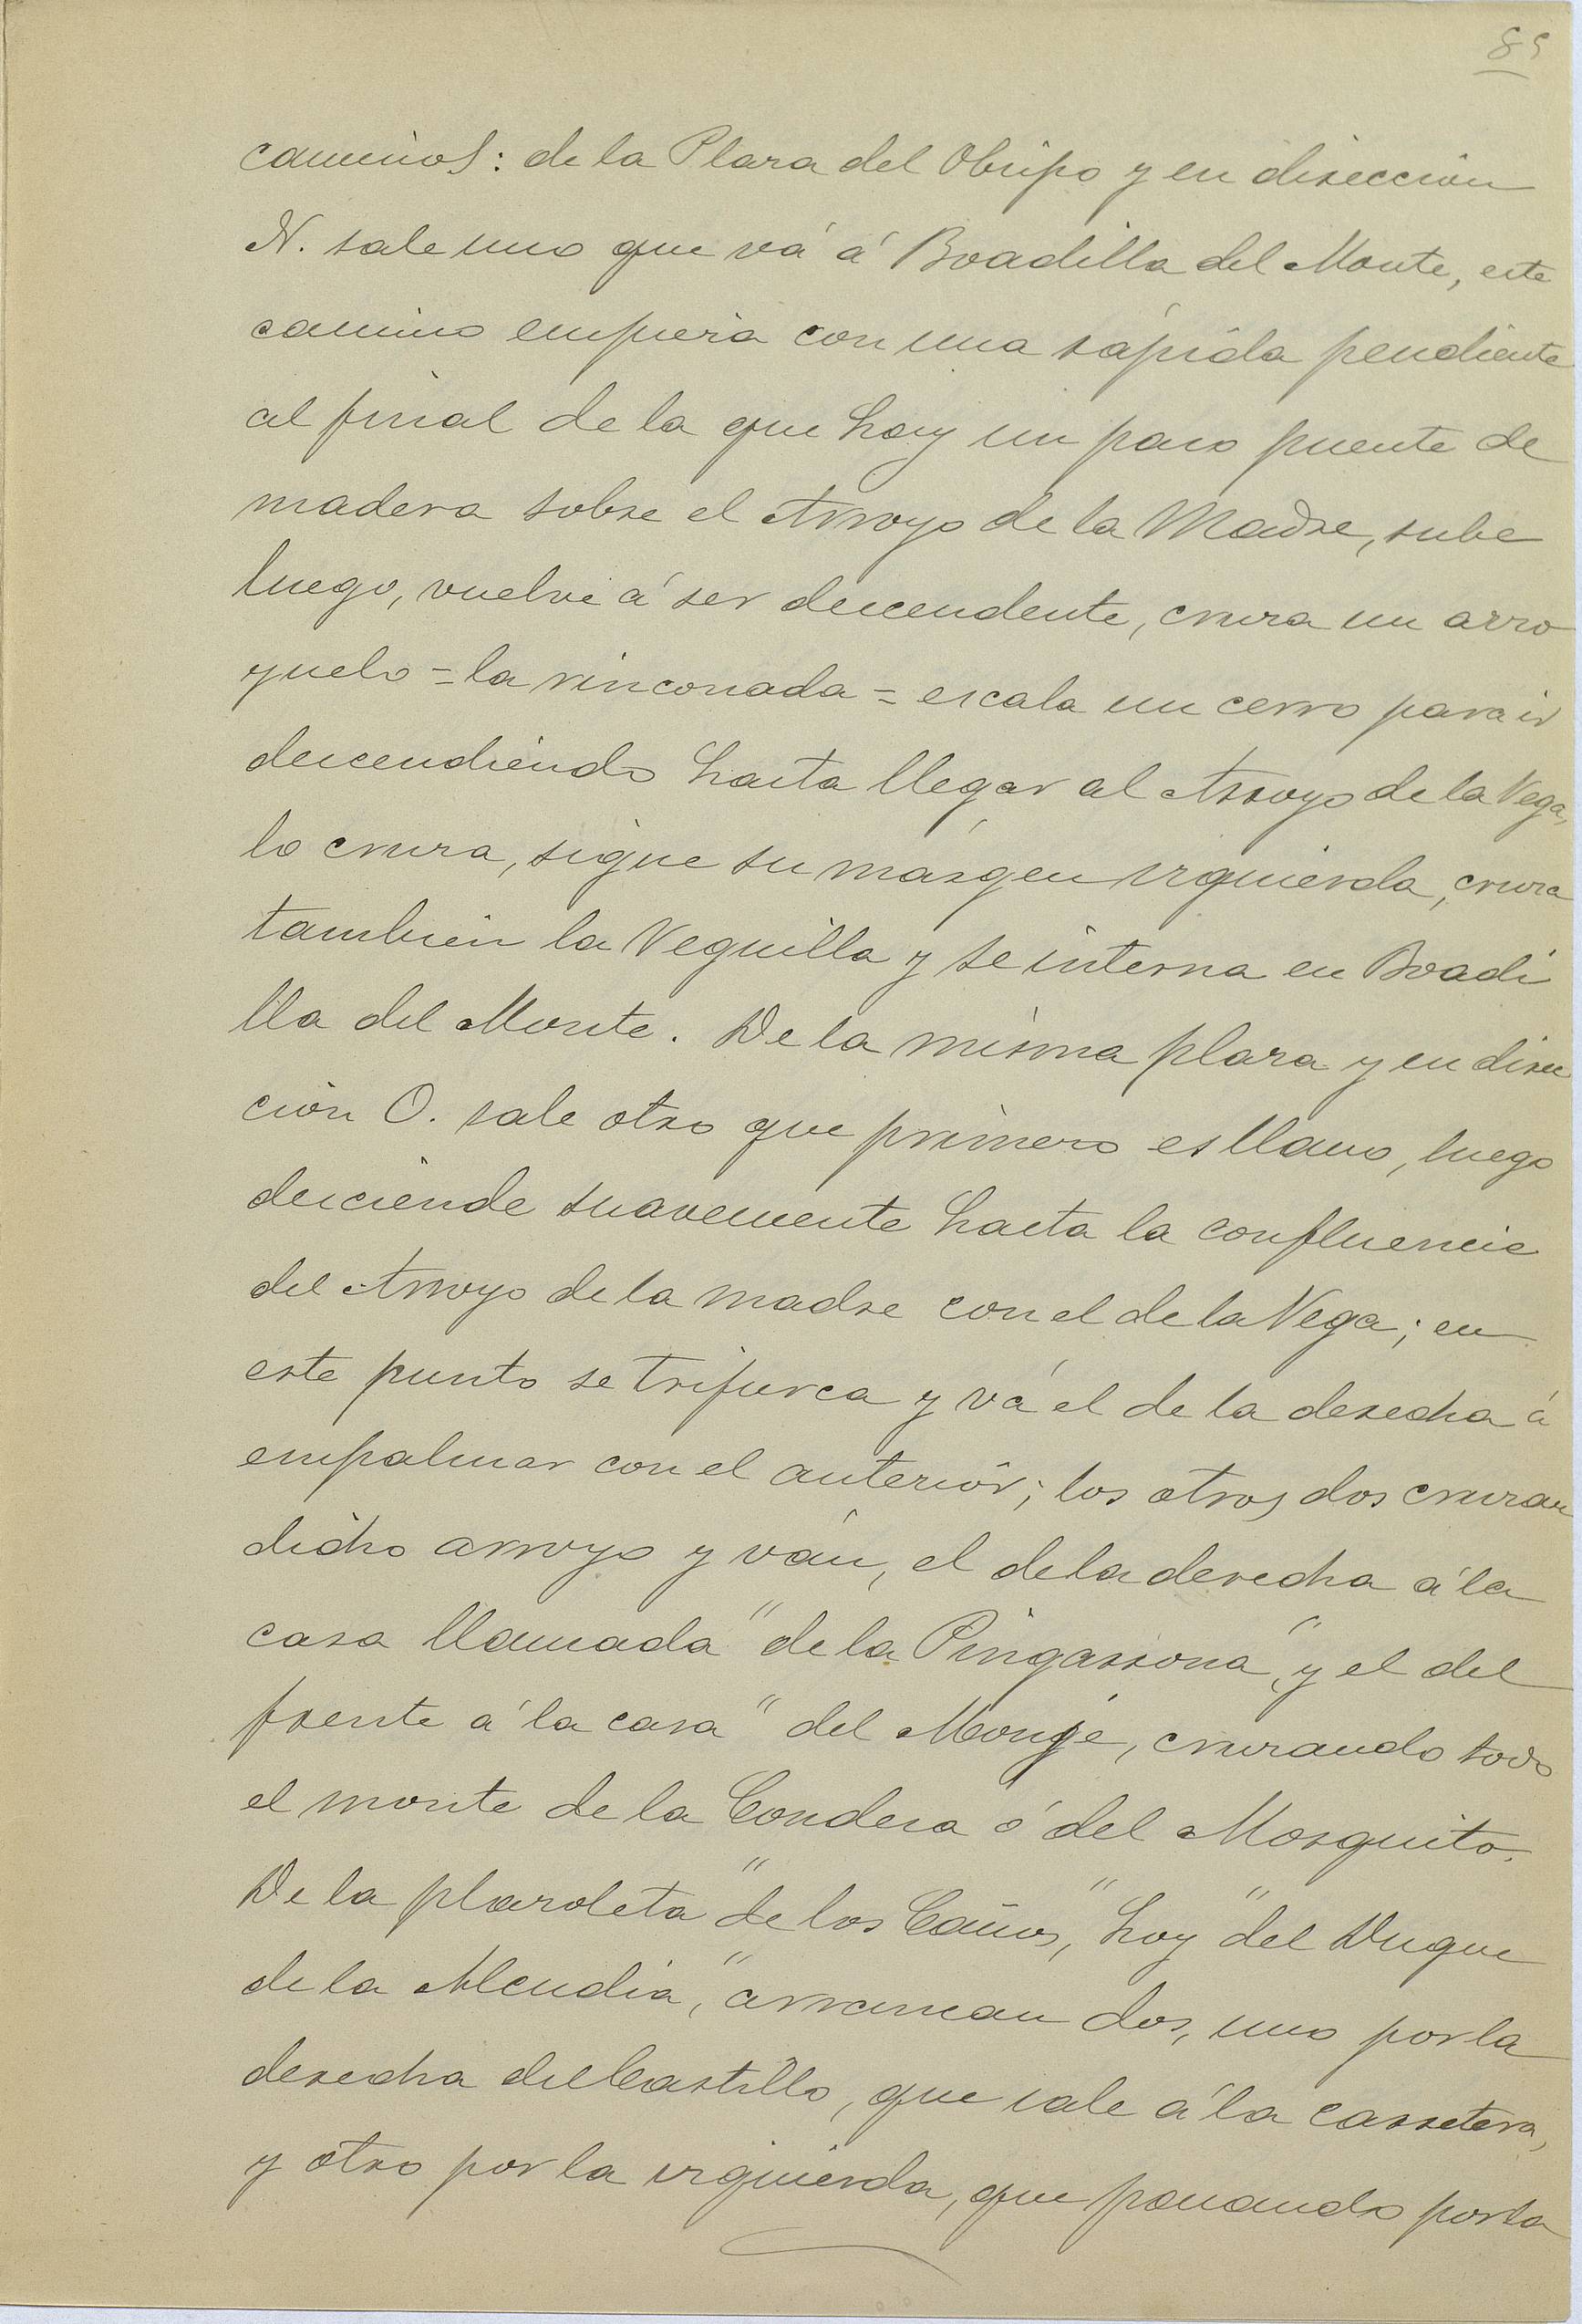 85
caminos: de la Plaza del Obispo y en dirección
N. sale uno que vá á Boadilla del Monte, este
camino empieza con una rápida pendiente
al final de la que hay un paso puente de
madera sobre el Arroyo de la Madre, sube
luego, vuelve á ser descendente, cruza un arro
yuelo = la rinconada = escala un cerro para ir
descendiendo hasta llegar al Arroyo de la Vega,
lo cruza, sigue su márgen izquierda, cruza
tambien la Veguilla y se interna en Boadi
lla del Monte. De la misma plaza y en direc
ción O. sale otro que primero es llano, luego
desciende suavemente hasta la confluencia
del Arroyo de la madre con el de la Vega; en
este punto se trifurca y vá el de la derecha á
empalmar con el anterior; los otros dos cruzan
dicho arroyo y ván, el de la derecha á la
casa llamada "de la Pingarrona", y el del
frente á la casa "del Monje, cruzando todo
el monte de la Condesa ó del Mosquito.
De la plazoleta "de los Caños," hoy "del Duque
de la Alcudia," arrancan dos, uno por la
derecha del Castillo, que sale á la carretera,
y otro por la izquierda, que pasando por la